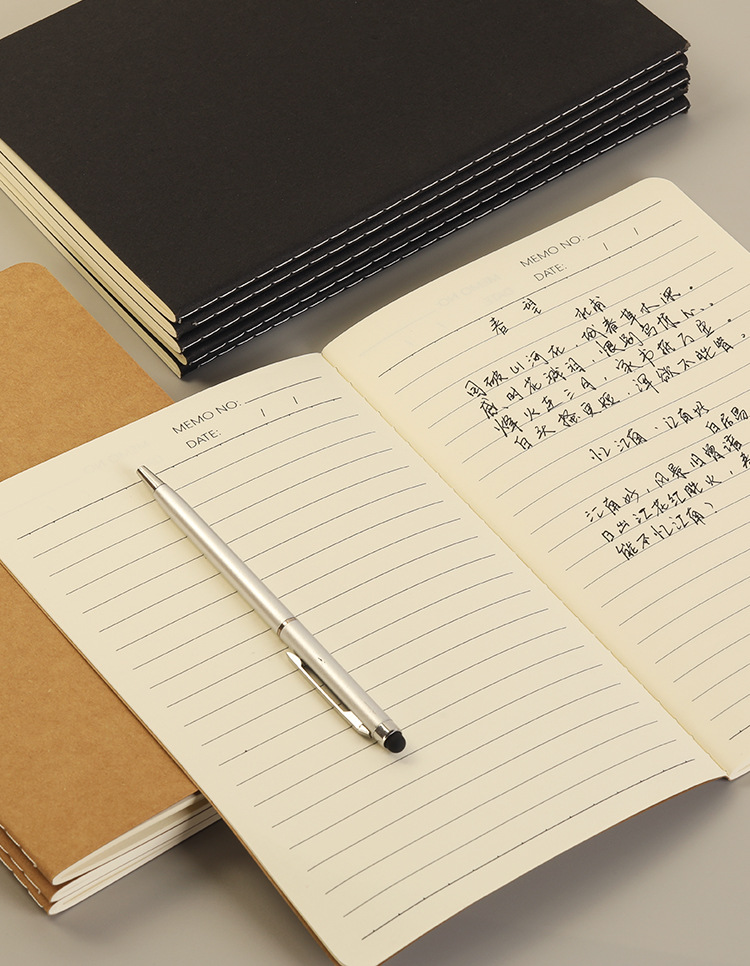 MEMO NO:
DATE: / /
MEMO NO:
DATE: / /
春望 杜甫
国破山河在，城春草木深。
感时花溅泪，恨别鸟惊心。
烽火连三月，家书抵万金。
白头搔更短，浑欲不胜簪。
忆江南·江南好
白居易
江南好，风景旧曾谙
日出江花红胜火，春
能不忆江南？